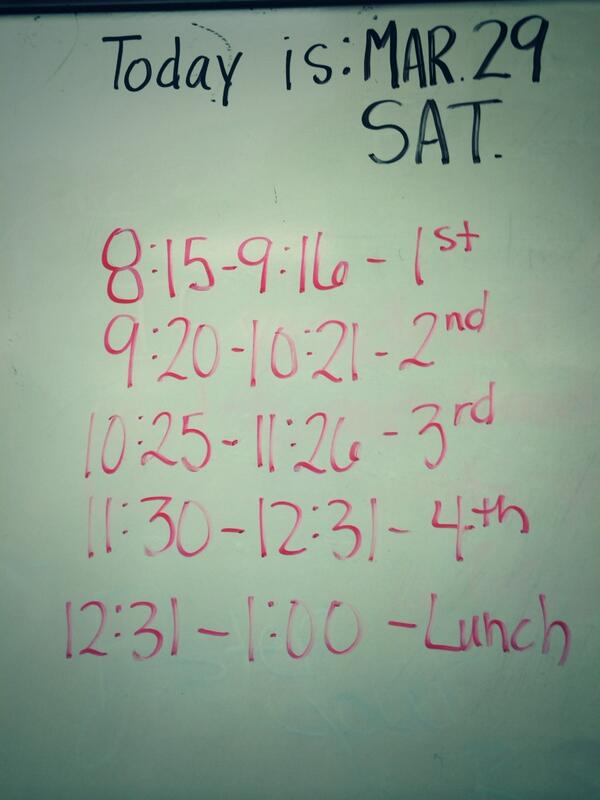 Today is: MAR. 29
SAT.
8:15-9:16 - 1st
9:20-10:21 - 2nd
10:25-11:26 - 3rd
11:30-12:31- 4th
12:31-1:00 -Lunch